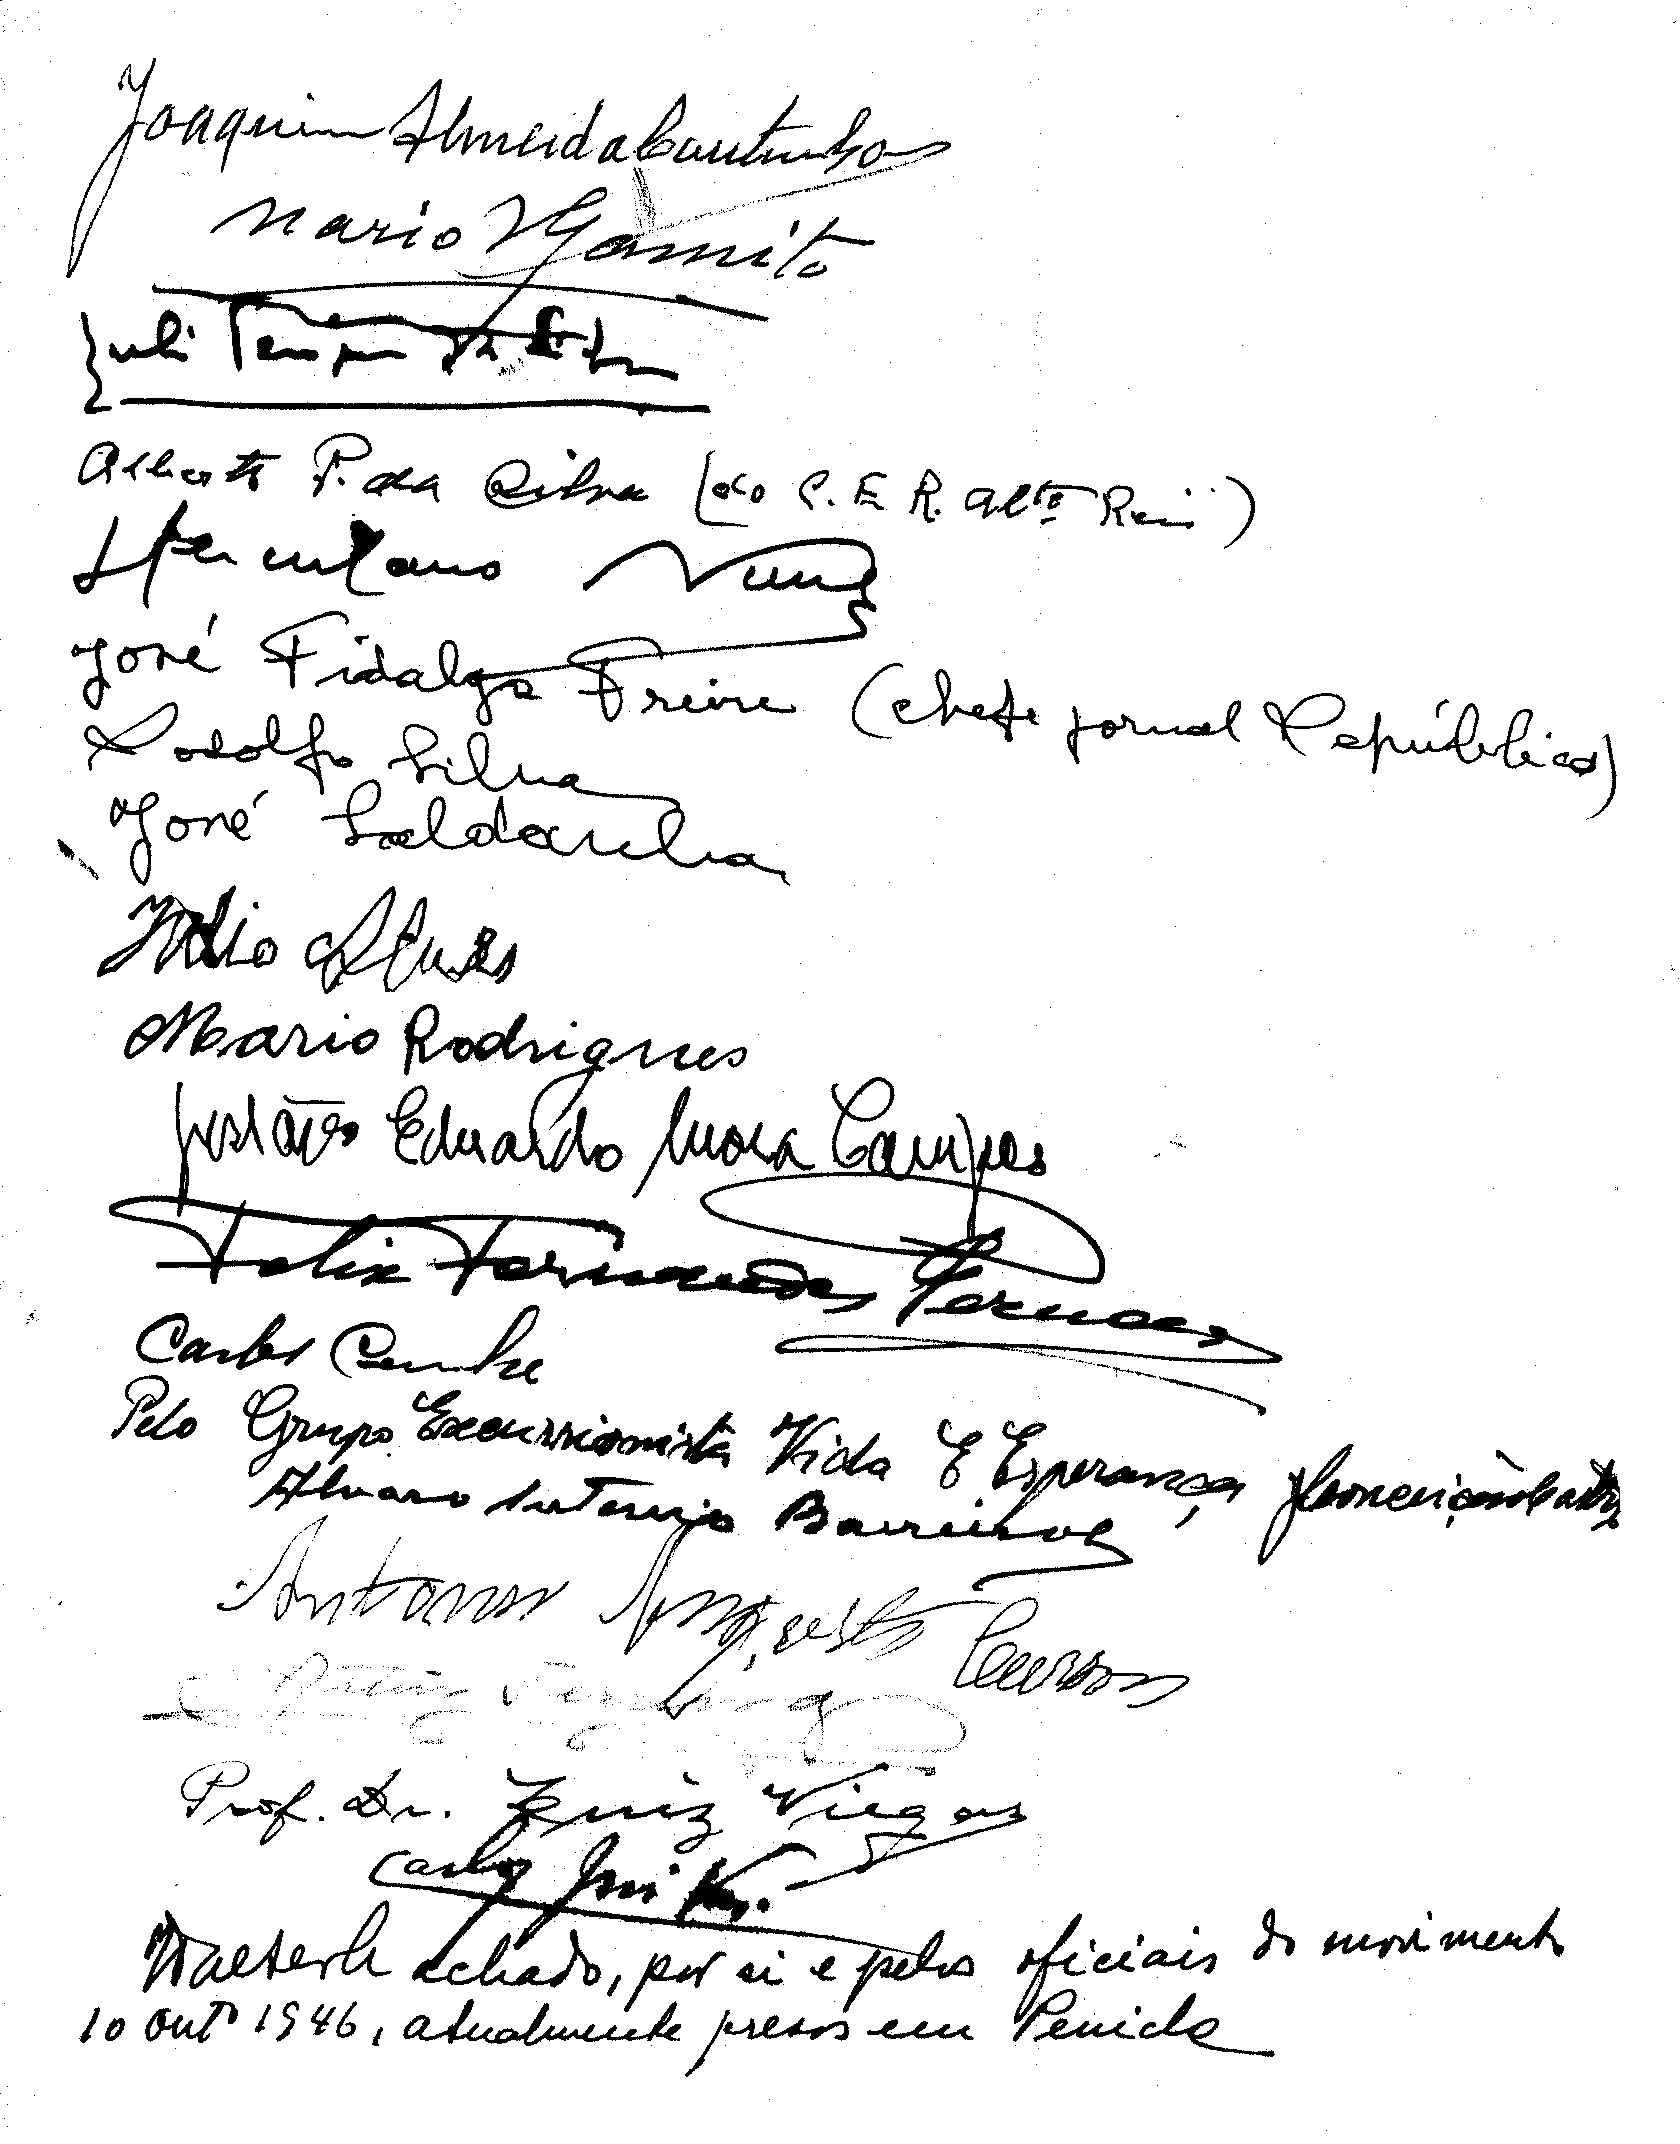 Joaquim Almeida Coutinho
Mario Gamito
da
Alberto P. da Silva (do C. E. R. Alto Pina)
Herculano Nunes
José Fidalgo Freire (chefe jornal República)
Rodolfo Silva
José Saldanha
Júlio Alves
Mario Rodrigues
Eduardo Mora Campos
Felix Fernandes
Carlos Cunha
Pelo Grupo Excursionista Vida E Esperança,
Alvaro Antonio Barreiros
Antonio Augusto
Prof. Dr. Luiz Viegas
Carlos José
Walter Machado, por si e pelos oficiais do movimento
10 outº 1946, atualmente presos em Peniche